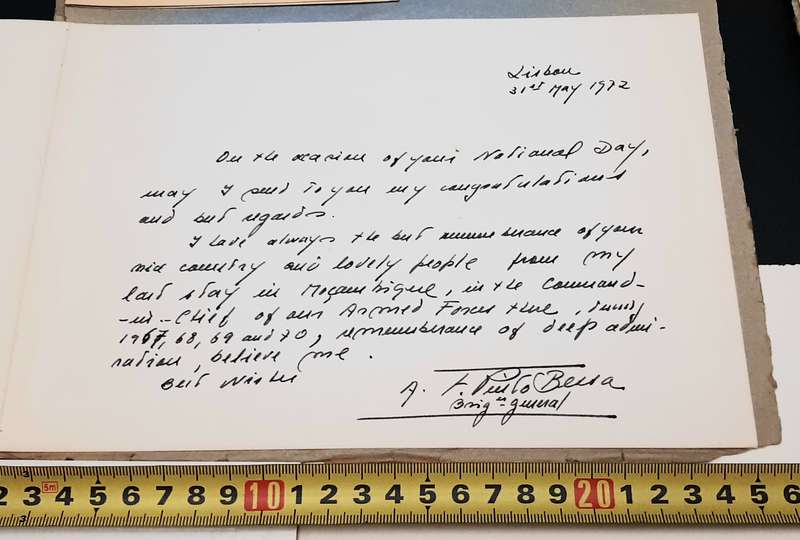 Lisbon
31st May 1972
On the ocasion of your National Day,
may I send to you my congratulations
and best regards.
I have always the best remembrance of your
nice country and lovely people from my
last stay in Moçambique, in the Command-
-in-Chief of our Armed Forces there, during
1967, 68, 69 and 70, remembrance of deep admi-
ration, believe me.
Best Wishes
A. F. Pinto Bessa
Brig. General
2 3 5m 4 5 6 7 8 9 10 1 2 3 4 5 6 7 8 9 20 1 2 3 4 5 6